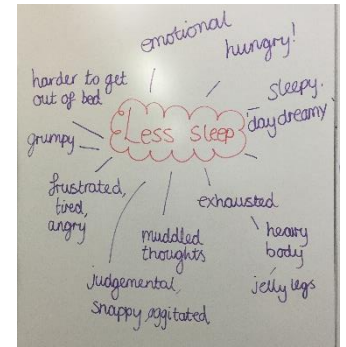 emotional
hungry!
harder to get
out of bed
sleepy.
day dreamy
Less sleep
grumpy
frustrated,
tired,
angry
exhausted
muddled
thoughts
heavy
body
jelly legs
judgemental,
snappy, aggitated